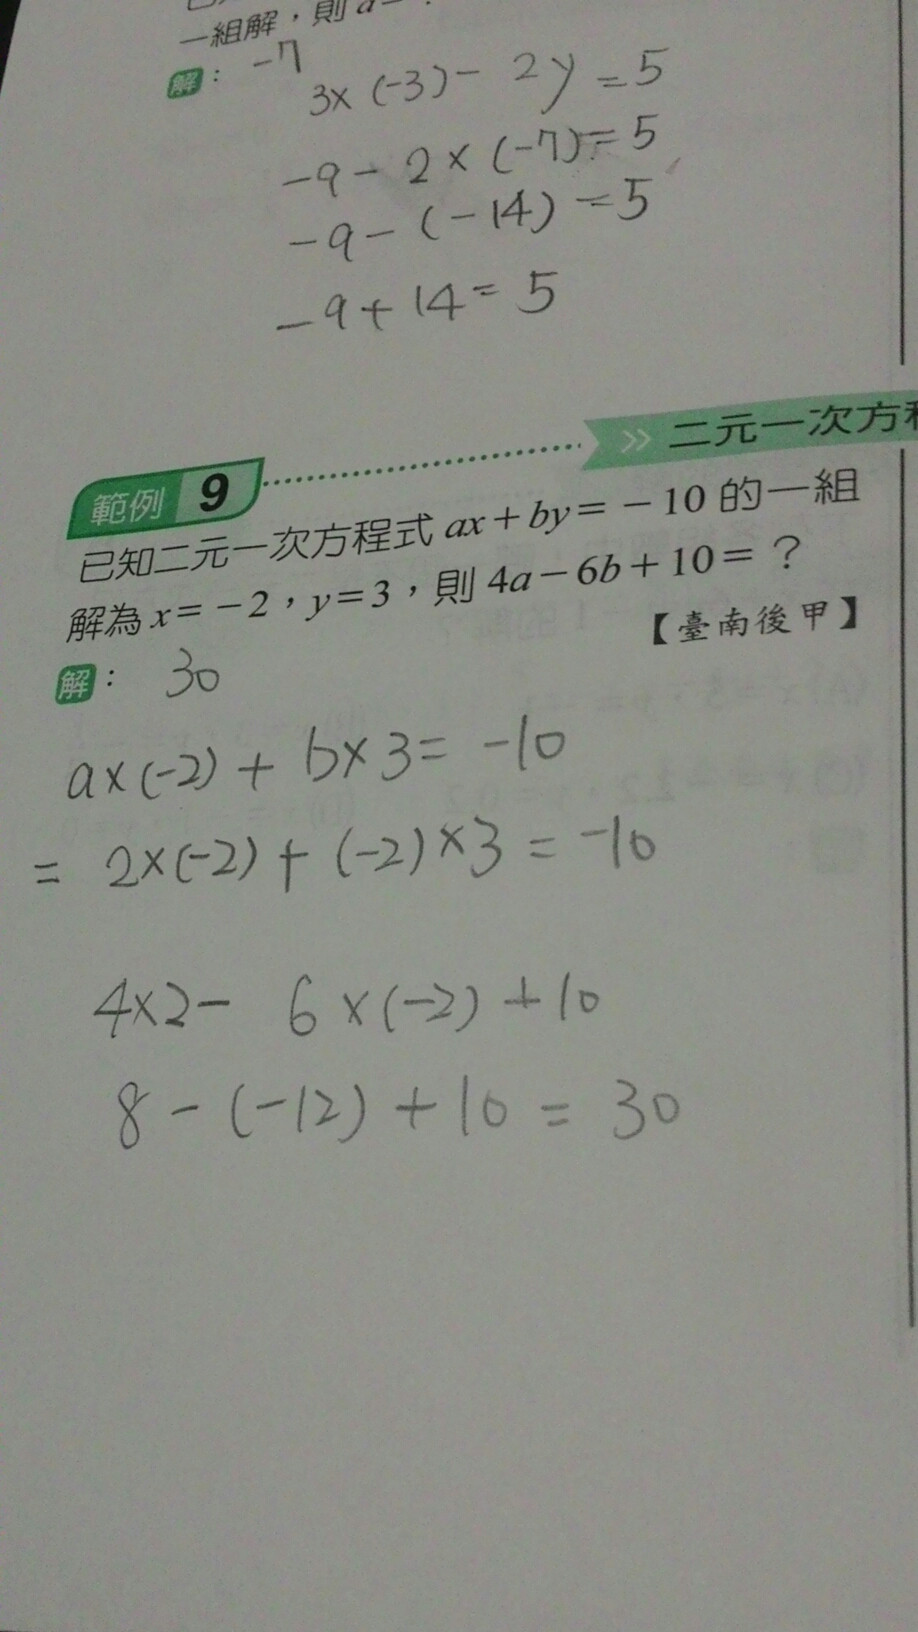 一組解，則 a
解： -7
3×(-3)- 2y =5
-9-2×(-7)=5
-9-(-14)=5
-9+14=5
» 二元一次方
範例 9
已知二元一次方程式 ax+by=-10 的一組
解為 x=-2，y=3，則 4a-6b+10=？
【臺南後甲】
解： 30
a×(-2)+ b×3= -10
= 2×(-2)+(-2)×3=-10
4×2- 6×(-2)+10
8-(-12)+10=30